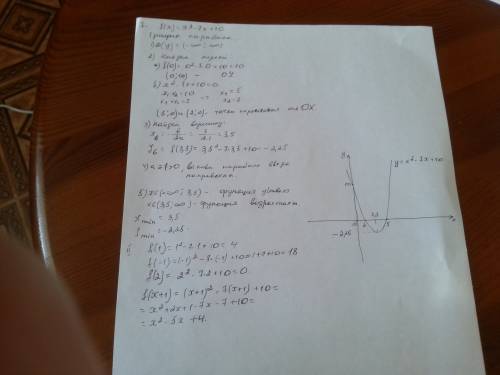 f(x) = x² - 7x + 10
1) D(y) = (-∞; ∞)
2)
а) f(0) = 0² - 7·0 + 10 = 10
(0; 10) - ОУ
б) x² - 7x + 10 = 0
x₁·x₂ = 10 x₁ = 5
x₁ + x₂ = 7 => x₂ = 2
(5; 0) и (2; 0) - точки пересечения с ОХ
3) Найдем вершину:
= 3,5
y = f(3,5) = 3,5² - 7·3,5 + 10 = -2,25
4) a = 1 > 0, ветви параболы вверх
направлены.
5) x ∈ (-∞; 3,5) - функция убывает
x ∈ (3,5; ∞) - функция возрастает
x min = 3,5
f min = -2,25
f(1) = 1² - 7·1 + 10 = 4
f(-1) = (-1)² - 7·(-1) + 10 = 1 + 7 + 10 = 18
f(2) = 2² - 7·2 + 10 = 0
f(x+1) = (x+1)² - 7(x+1) + 10 =
= x² + 2x + 1 - 7x - 7 + 10 =
= x² - 5x + 4.
y
y = x² - 7x + 10
3,5
2
5
x
-2,25